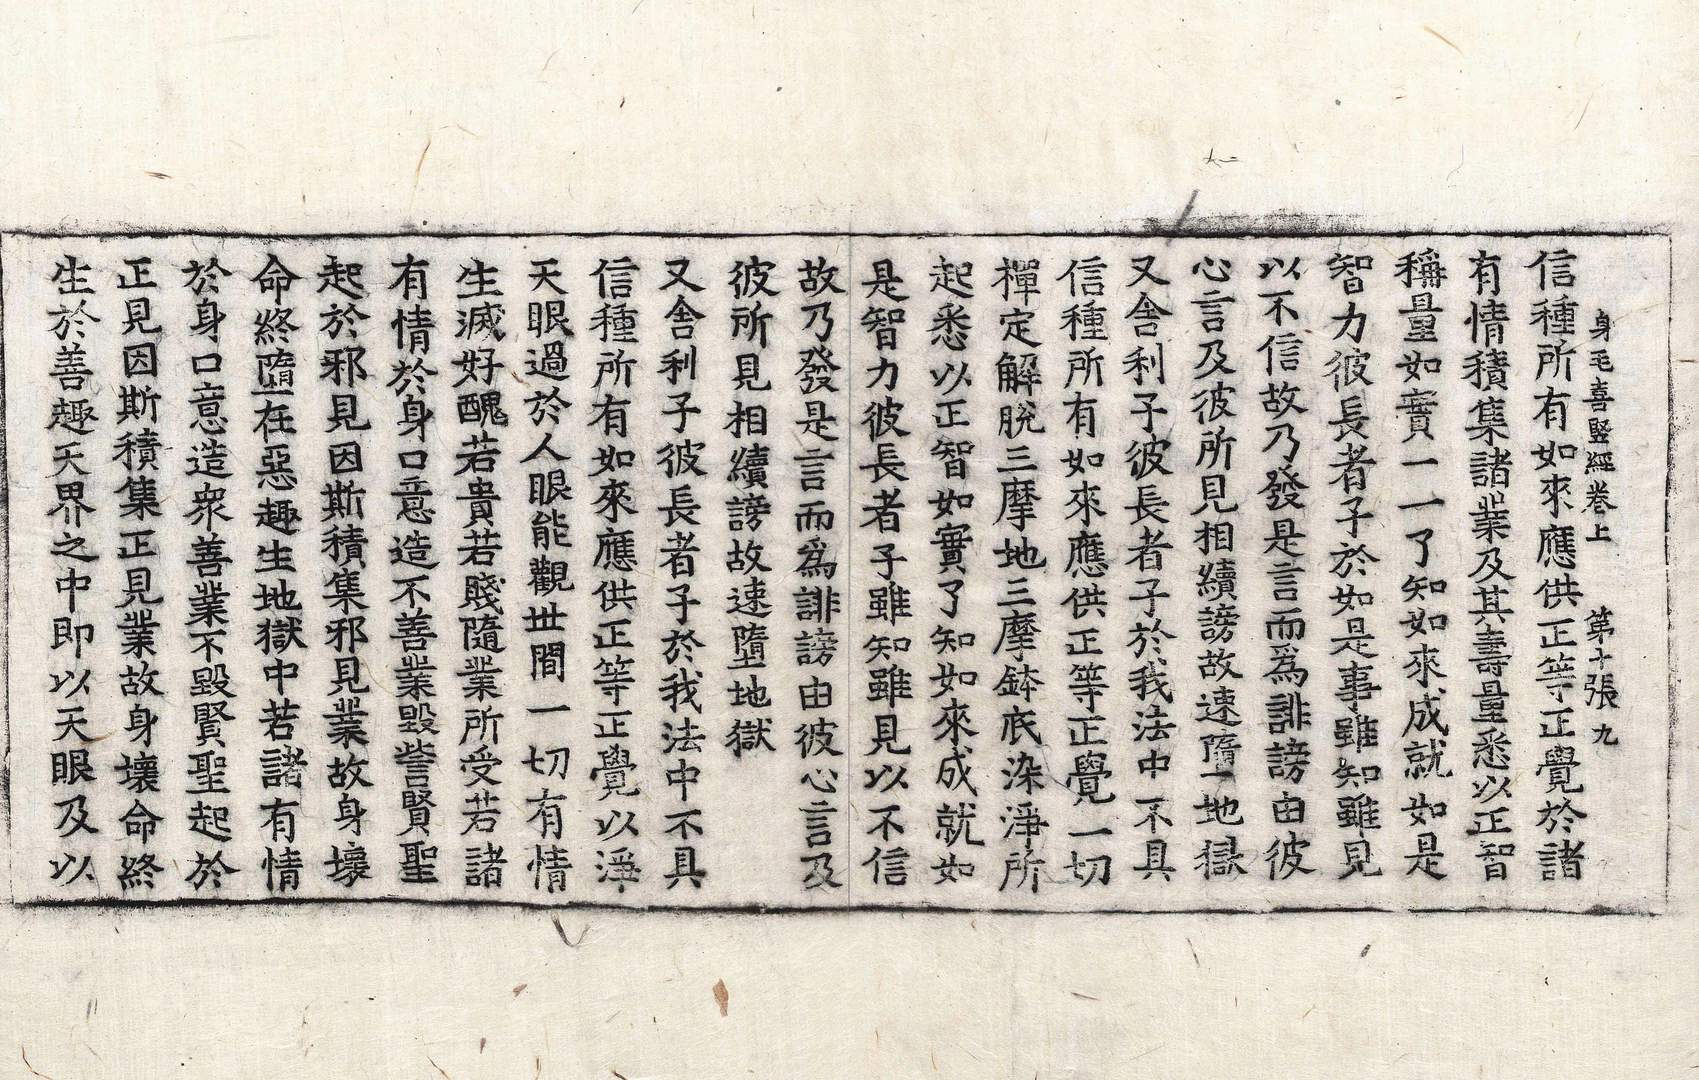 身毛喜竪經卷上 第十張 九
信種所有如來應供正等正覺於諸
有情積集諸業及其壽量悉以正智
稱量如實一一了知如來成就如是
智力彼長者子於如是事雖知雖見
以不信故乃發是言而爲誹謗由彼
心言及彼所見相續謗故速墮地獄
又舍利子彼長者子於我法中不具
信種所有如來應供正等正覺一切
禪定解脫三摩地三摩鉢底染淨所
起悉以正智如實了知如來成就如
是智力彼長者子雖知雖見以不信
故乃發是言而爲誹謗由彼心言及
彼所見相續謗故速墮地獄
又舍利子彼長者子於我法中不具
信種所有如來應供正等正覺以淨
天眼過於人眼能觀世間一切有情
生滅好醜若貴若賤隨業所受若諸
有情於身口意造不善業毀訾賢聖
起於邪見因斯積集邪見業故身壞
命終墮在惡趣生地獄中若諸有情
於身口意造衆善業不毀賢聖起於
正見因斯積集正見業故身壞命終
生於善趣天界之中即以天眼及以